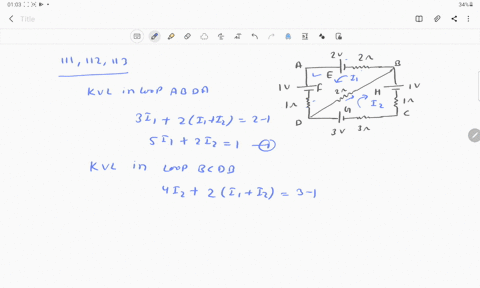 01:03
34%
Title
111, 112, 113
KVL in Loop ABDA
3I₁ + 2(I₁+I₂) = 2-1
5I₁ + 2I₂ = 1 —①
KVL in Loop BCDB
4I₂ + 2(I₁+I₂) = 3-1
2V 2Ω
A B
E I₁
1V F 2Ω H 1V
1Ω G I₂ 1Ω
D C
3V 3Ω